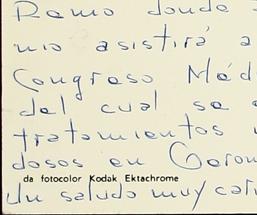 Remo donde
mio asistirá a
Congreso Méd
del cual se
tratamientos
dosos en Geron
da fotocolor Kodak Ektachrome
Un saludo muy cari